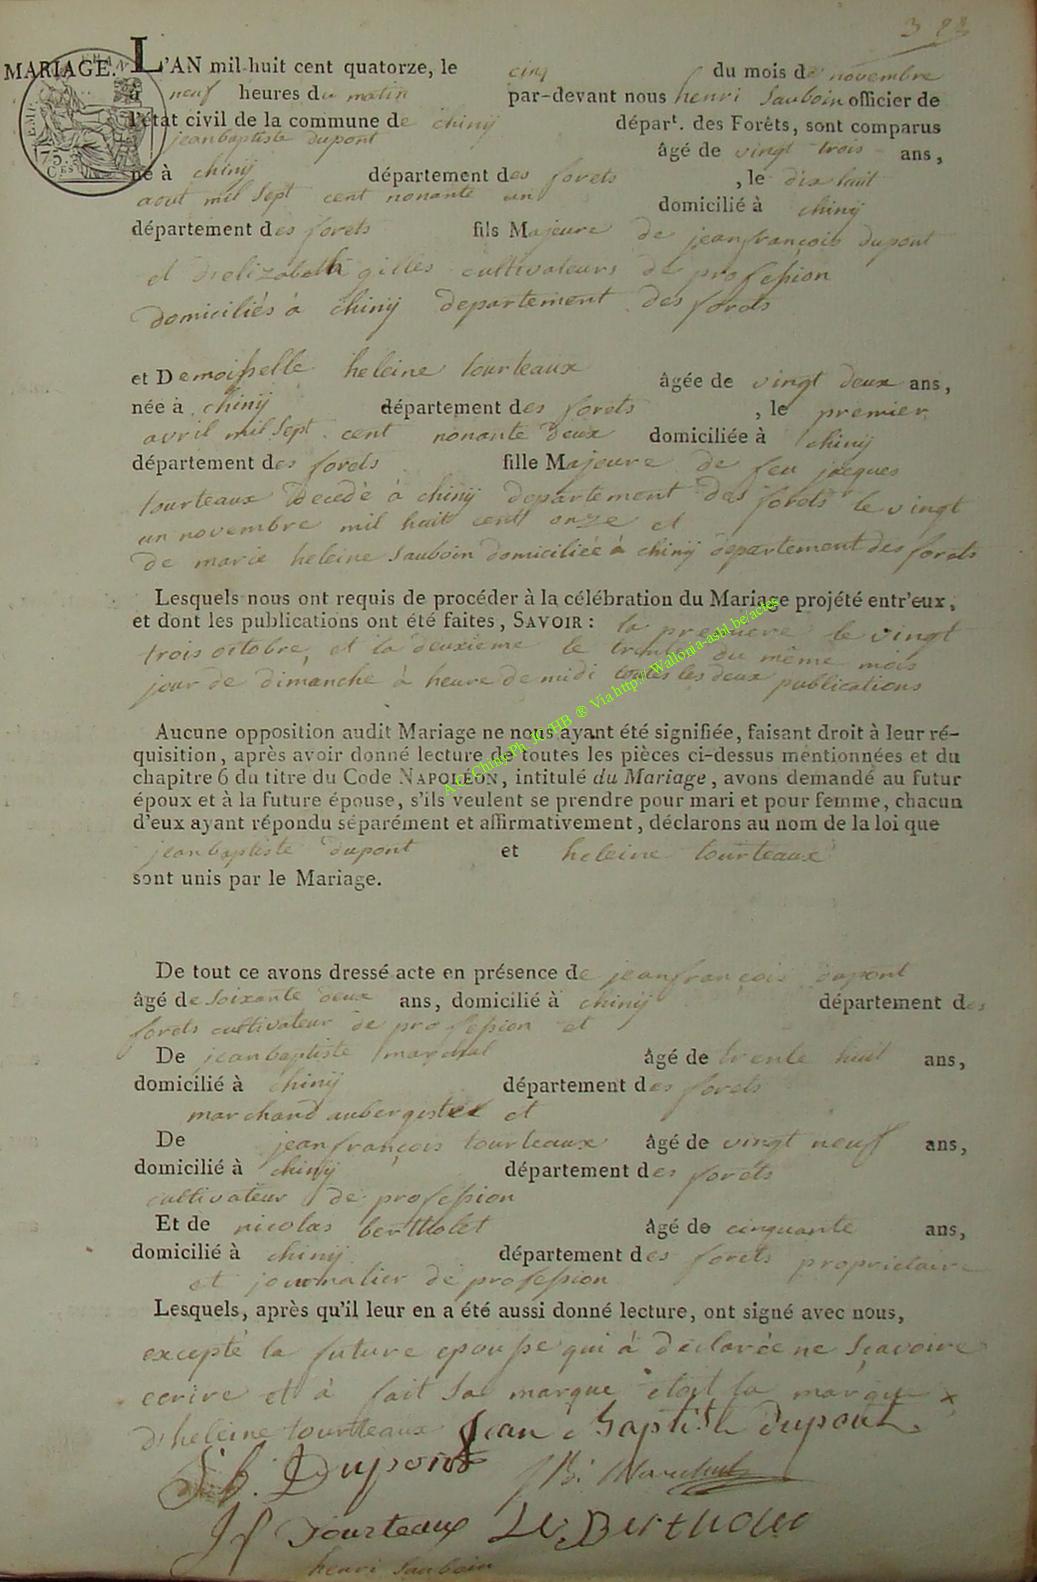 388
MARIAGE. L'AN mil huit cent quatorze, le cinq du mois de novembre
à neuf heures du matin par-devant nous henri Sauboin officier de
l'état civil de la commune de chinij départ. des Forêts, sont comparus
jeanbaptiste dupont âgé de vingt trois ans,
né à chinij département des forets, le dix huit
aout mil Sept cent nonante un domicilié à chinij
département des forets fils Majeure de jeanfrançois dupont
et d'elizabeth gilles cultivateurs de profession
domiciliés à chinij departement des forets
et Demoisselle heleine tourteaux âgée de vingt deux ans,
née à chinij département des forets, le premier
avril mil Sept cent nonante deux domiciliée à chinij
département des forets fille Majeure de feu jacques
tourteaux decedé à chinij departement des forets le vingt
un novembre mil huit cent onze et
de marie heleine Sauboin domiciliée à chinij departement des forets
Lesquels nous ont requis de procéder à la célébration du Mariage projété entr'eux,
et dont les publications ont été faites, SAVOIR : la premiere le vingt
trois octobre, et la deuxieme le trente du même mois
jour de dimanche à heure de midi toutes les deux publications
Aucune opposition audit Mariage ne nous ayant été signifiée, faisant droit à leur ré-
quisition, après avoir donné lecture de toutes les pièces ci-dessus mentionnées et du
chapitre 6 du titre du Code NAPOLÉON, intitulé du Mariage, avons demandé au futur
époux et à la future épouse, s'ils veulent se prendre pour mari et pour femme, chacun
d'eux ayant répondu séparément et affirmativement, déclarons au nom de la loi que
jeanbaptiste dupont et heleine tourteaux
sont unis par le Mariage.
De tout ce avons dressé acte en présence de jeanfrançois dupont
âgé de Soixante deux ans, domicilié à chinij département des
forets cultivateur de profession et
De jeanbaptiste marchal âgé de trente huit ans,
domicilié à chinij département des forets
marchand aubergiste et
De jeanfrançois tourteaux âgé de vingt neuf ans,
domicilié à chinij département des forets
cultivateur de profession
Et de nicolas bertholet âgé de cinquante ans,
domicilié à chinij département des forets proprietaire
et journalier de profession
Lesquels, après qu'il leur en a été aussi donné lecture, ont signé avec nous,
excepté la future epousse qui à declarée ne sçavoire
ecrire et à fait Sa marque étoit la marque x
d'heleine tourteaux Jean Baptiste Dupont
Dupont JB. Marchal
Jf Tourteaux Bertholet
henri Sauboin
AC Chiny Ph JC HB ® Via http://Wallonia-asbl.be/actes